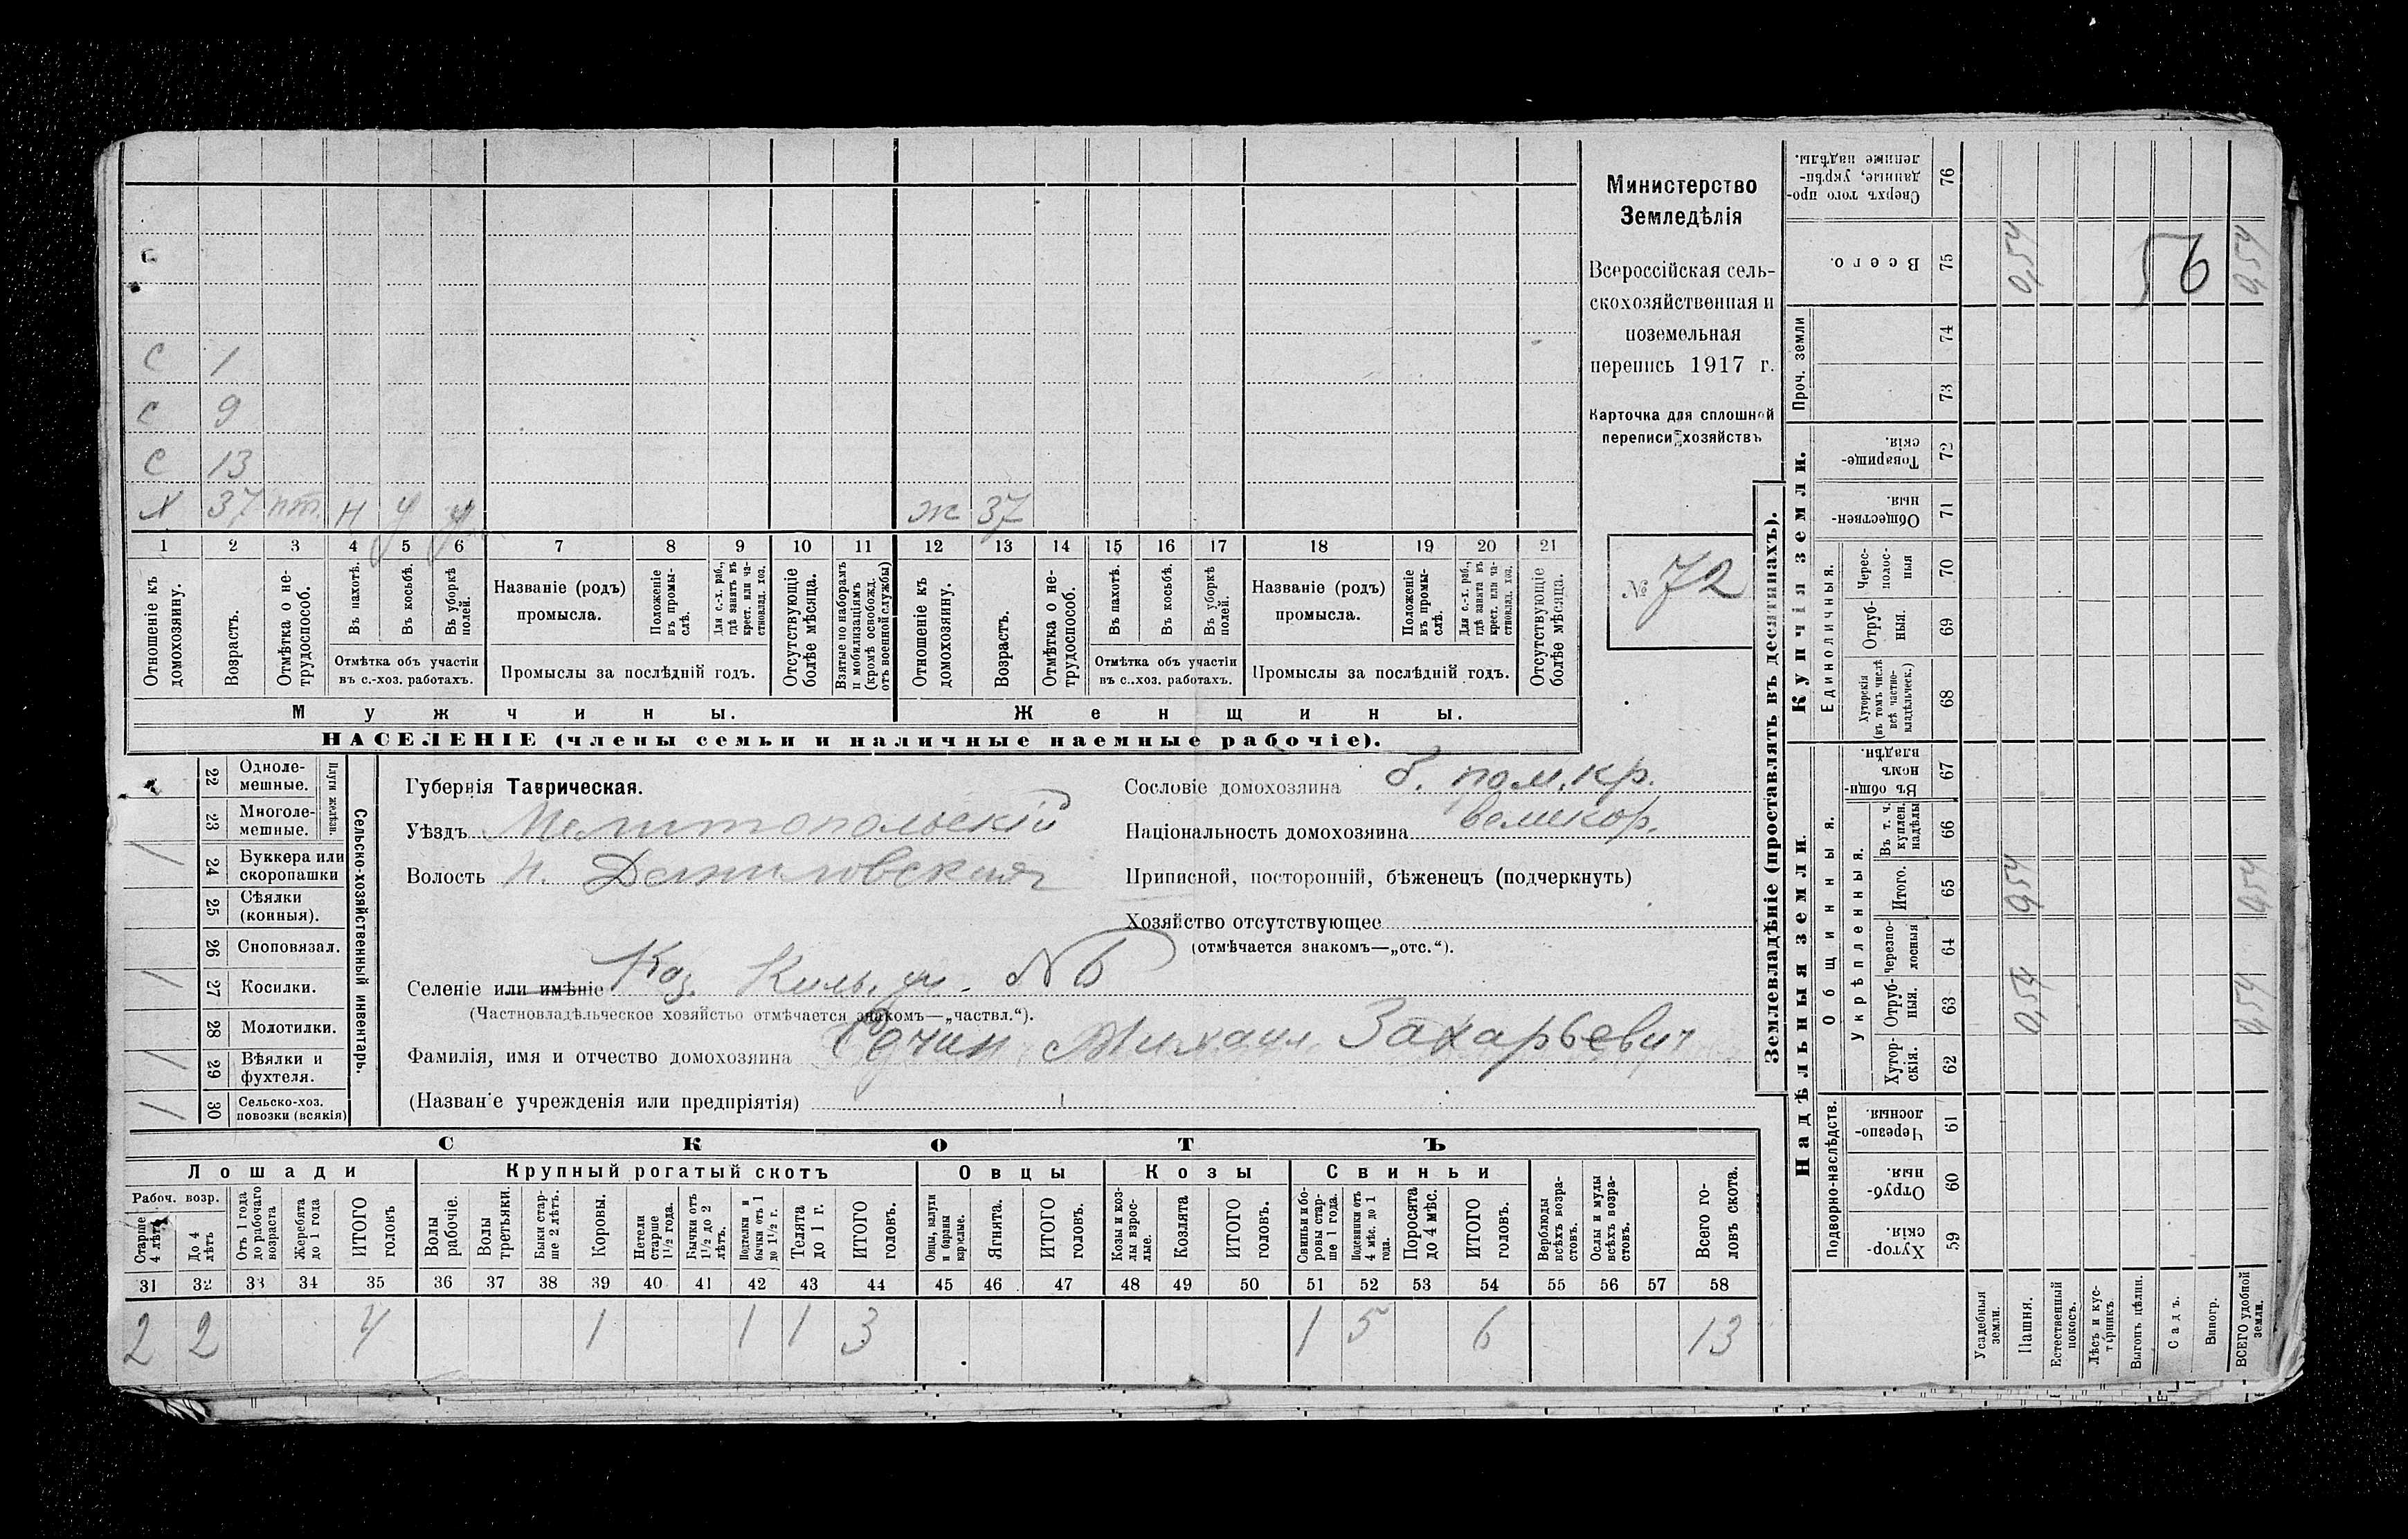 Министерство
Земледѣлія
Всероссійская сель-
скохозяйственная и
поземельная
перепись 1917 г.
Карточка для сплошной
переписи хозяйствъ
№ 72
С
С 1
С 9
С 13
Х 37 пт. н у у ж 37
1 2 3 4 5 6 7 8 9 10 11 12 13 14 15 16 17 18 19 20 21
Отношеніе къ домохозяину.
Возрастъ.
Отмѣтка о не-трудоспособ.
Въ пахотѣ.
Въ косьбѣ.
Въ уборкѣ полей.
Отмѣтка объ участіи
въ с.-хоз. работахъ.
Названіе (родъ)
промысла.
Положеніе въ промы-слѣ.
Для с.-х. раб., гдѣ занятъ въ крест. или ча-стновлад. хоз.
Промыслы за послѣдній годъ.
Отсутствующіе болѣе мѣсяца.
Взятые по наборамъ и мобилизаціямъ (кромѣ освобожд. отъ военной службы)
Отношеніе къ домохозяину.
Возрастъ.
Отмѣтка о не-трудоспособ.
Въ пахотѣ.
Въ косьбѣ.
Въ уборкѣ полей.
Отмѣтка объ участіи
въ с..хоз. работахъ.
Названіе (родъ)
промысла.
Положеніе въ промы-слѣ.
Для с.-х. раб., гдѣ занята въ крест. или ча-стновлад. хоз.
Промыслы за послѣдній годъ.
Отсутствующіе болѣе мѣсяца.
Мужчины. Женщины.
НАСЕЛЕНІЕ (члены семьи и наличные наемные рабочіе).
Сельско-хозяйственный инвентарь.
Плуги желѣзн.
22 Одноле-мешные.
23 Многоле-мешные.
/ 24 Буккера или скоропашки
25 Сѣялки (конныя).
26 Сноповязал.
/ 27 Косилки.
28 Молотилки.
/ 29 Вѣялки и фухтеля.
/ 30 Сельско-хоз. повозки (всякія)
Губернія Таврическая.
Уѣздъ Мелитопольскій
Волость Н. Даниловская
Селеніе или имѣніе Каз. Киль. уч. №6
(Частновладѣльческое хозяйство отмѣчается знакомъ—„частвл.“).
Фамилія, имя и отчество домохозяина Михаил Захарьевич
(Названіе учрежденія или предпріятія)
Сословіе домохозяина б. пом. кр.
Національность домохозяина великор.
Приписной, посторонній, бѣженецъ (подчеркнуть)
Хозяйство отсутствующее
(отмѣчается знакомъ—„отс.“).
СКОТЪ
Лошади Крупный рогатый скотъ Овцы Козы Свиньи
Рабоч. возр.
Старше 4 лѣтъ
До 4 лѣтъ
Отъ 1 года до рабочаго возраста
Жеребята до 1 года
ИТОГО головъ
Волы рабочіе.
Волы третьяки.
Быки стар-ше 2 лѣтъ.
Коровы.
Нетели старше 1½ года.
Бычки отъ 1½ до 2 лѣтъ.
Подтелки и бычки отъ 1 до 1½ г.
Телята до 1 г.
ИТОГО головъ.
Овцы, валухи и бараны взрослые.
Ягнята.
ИТОГО головъ.
Козы и коз-лы взрос-лые.
Козлята
ИТОГО головъ.
Свиньи и бо-ровы стар-ше 1 года.
Подсвинки отъ 4 мѣс. до 1 года.
Поросята до 4 мѣс.
ИТОГО головъ.
Верблюды всѣхъ возра-стовъ.
Ослы и мулы всѣхъ возра-стовъ.
Всего го-ловъ скота.
31 32 33 34 35 36 37 38 39 40 41 42 43 44 45 46 47 48 49 50 51 52 53 54 55 56 57 58
2 2 4 1 1 1 3 1 5 6 13
Землевладѣніе (проставлять въ десятинахъ).
Надѣльныя земли. Купчія земли. Проч. земли
Подворно-наслѣдств.
Общинныя.
Укрѣпленныя.
Единоличныя.
59 Хутор-скія.
60 Отруб-ныя.
61 Черезпо-лосныя
62 Хутор-скія.
63 Отруб-ныя. 0,54 0,54
64 Черезпо-лосныя
65 Итого. 0,54 0,54
66 Въ т. ч. куплен. надѣлы
67 Въ общи-номъ владѣн.
68 Хуторскія (въ томъ числѣ всѣ частно-владѣльческ.)
69 Отруб-ныя.
70 Черес-полос-ныя
71 Обществен-ныя.
72 Товарище-скія.
73
74
75 Всего. 0,54 0,54
76 Сверхъ того про-данные, укрѣп-ленные надѣлы.
56
Усадебныя земли.
Пашня.
Естественный покосъ.
Лѣсъ и кус-тарникъ.
Выгонъ цѣлин.
Садъ.
Виногр.
ВСЕГО удобной земли.